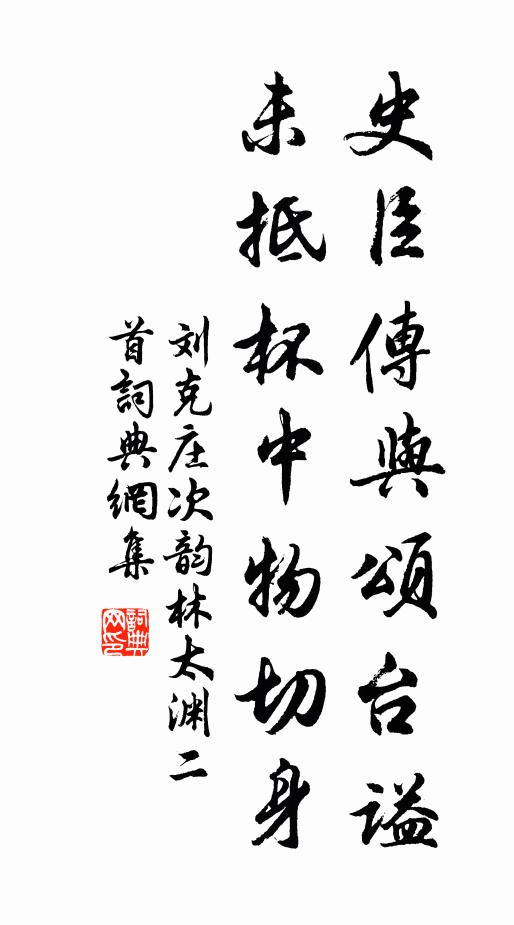 史臣傳與頌台謚
未抵杯中物切身
刘克庄次韵林太渊二
首詞典網集
詞典网印